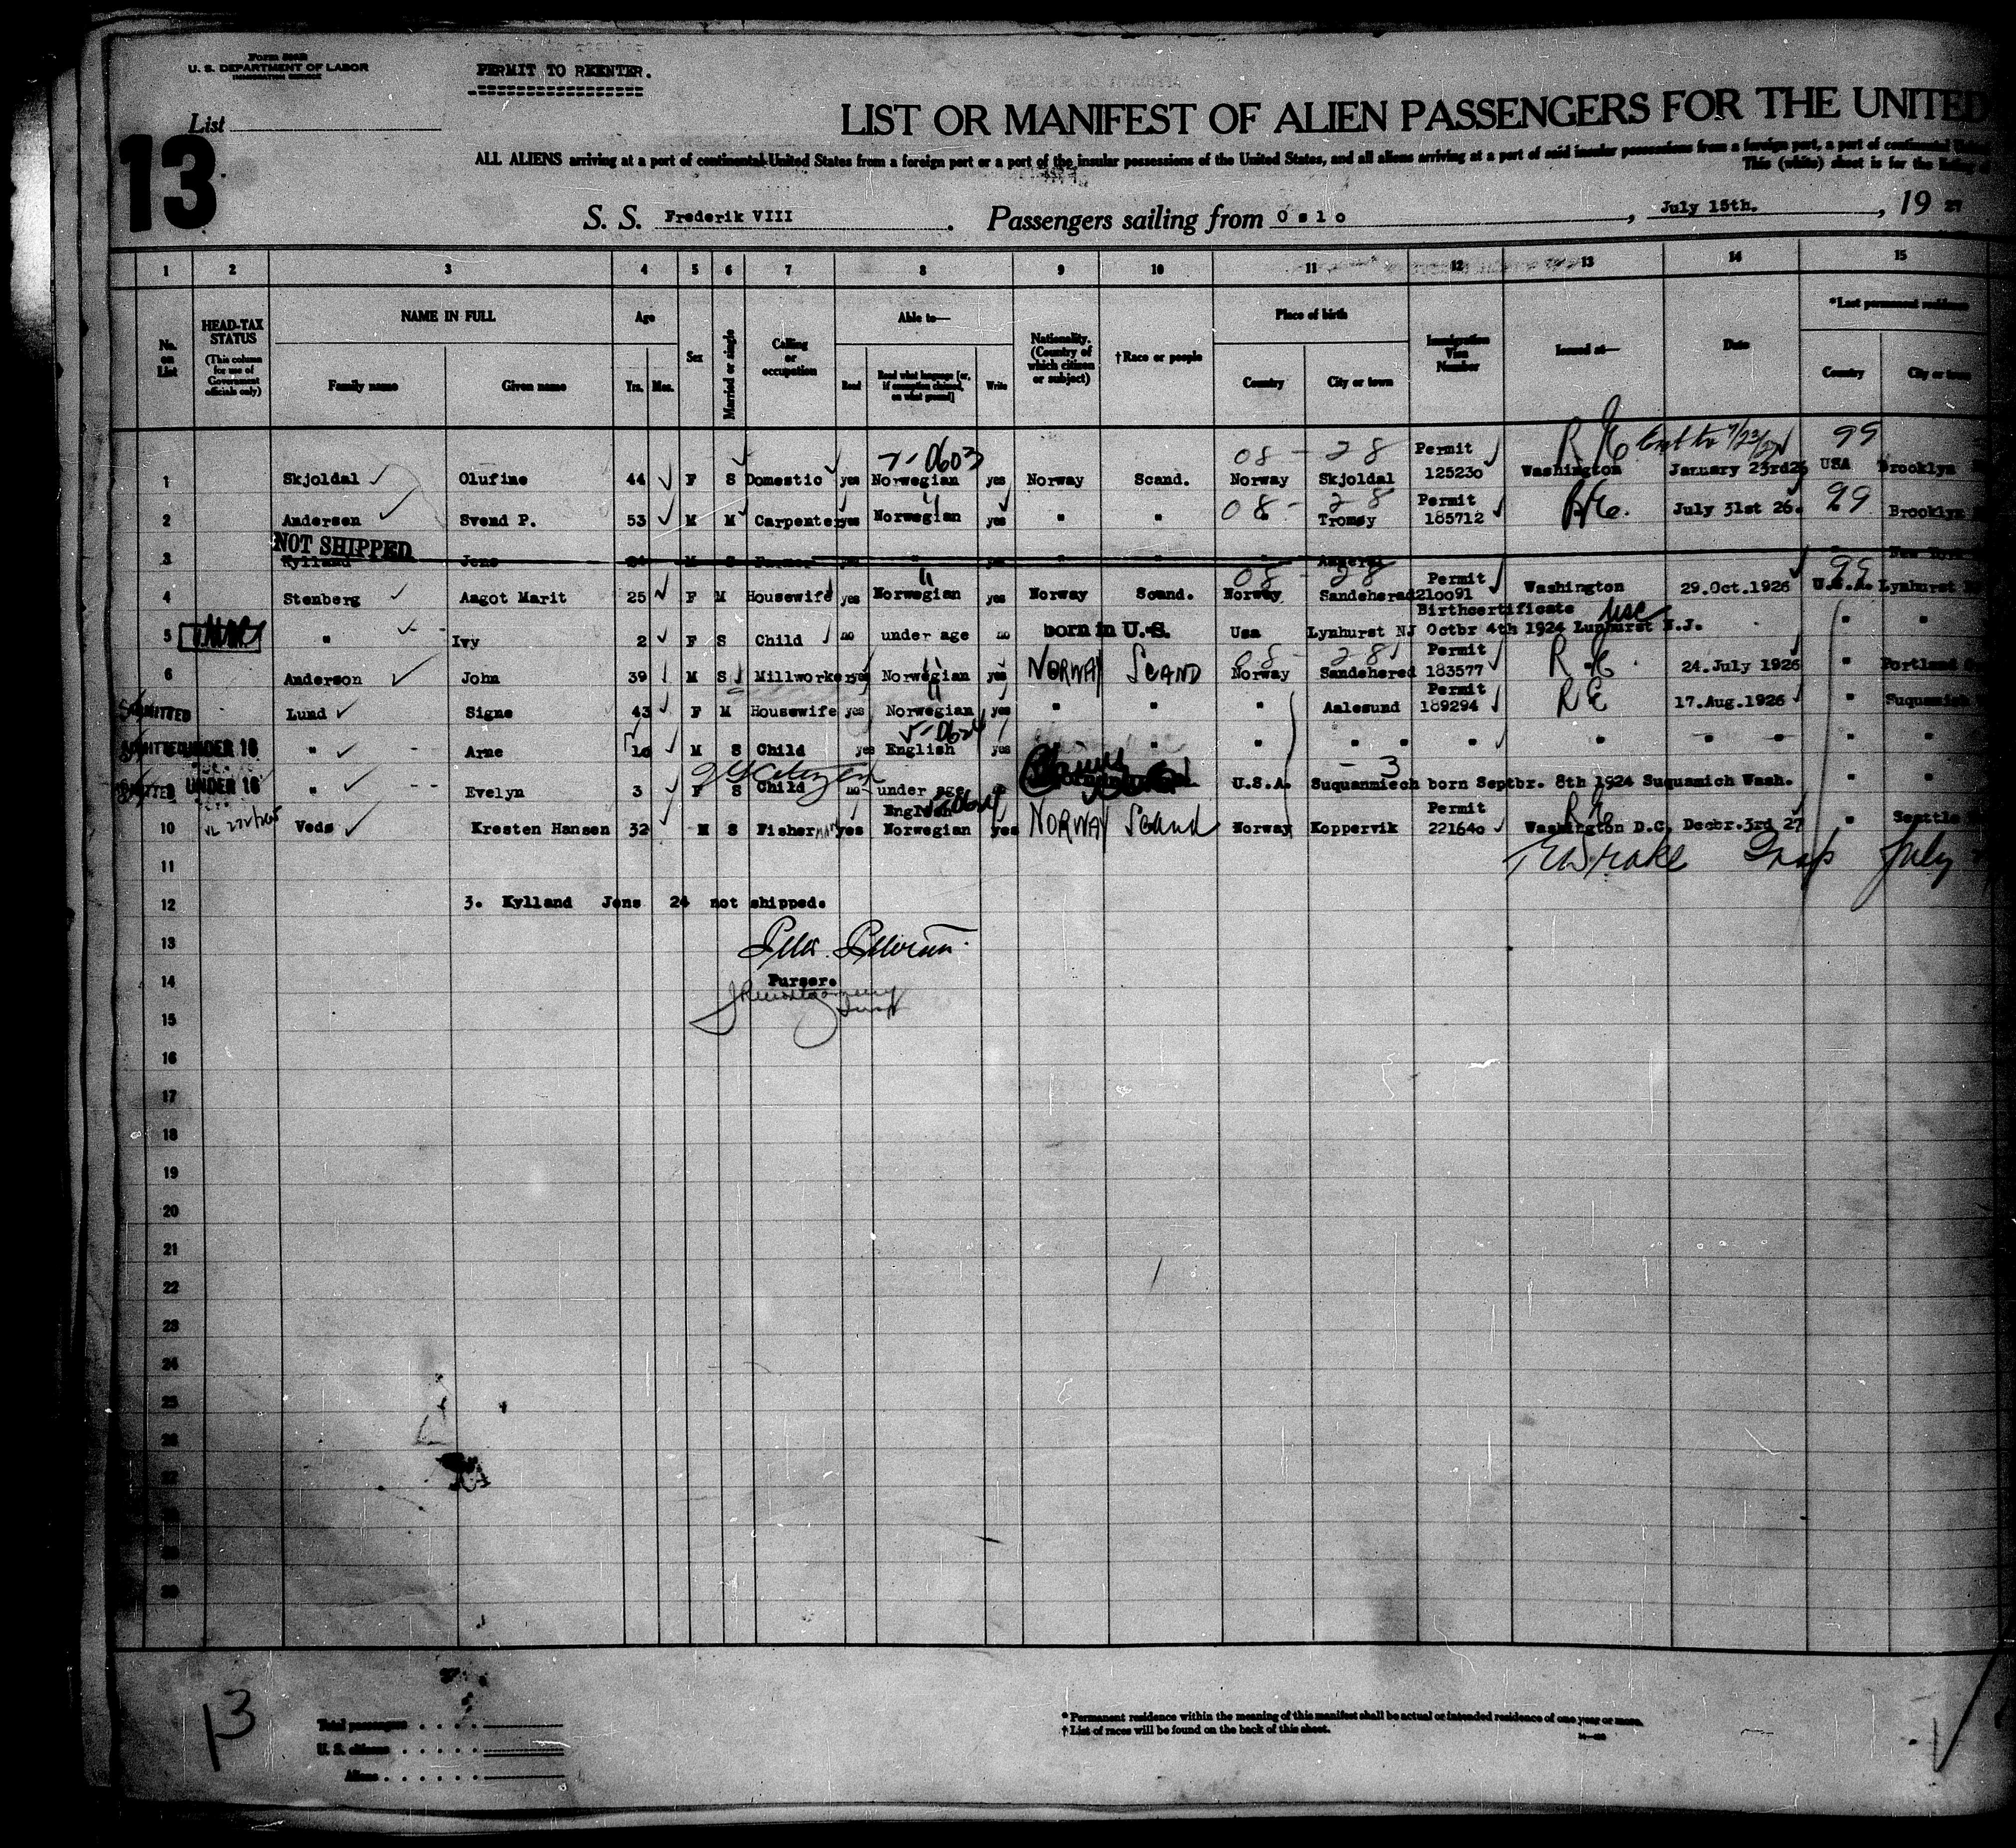 Form 500B
U. S. DEPARTMENT OF LABOR
IMMIGRATION SERVICE
PERMIT TO REENTER.
List
13
LIST OR MANIFEST OF ALIEN PASSENGERS FOR THE UNITED
ALL ALIENS arriving at a port of continental United States from a foreign port or a port of the insular possessions of the United States, and all aliens arriving at a port of said insular possessions from a foreign port, a port of continental
This (white) sheet is for the listing of
S. S. Frederik VIII . Passengers sailing from Oslo , July 15th. , 19 27
1 2 3 4 5 6 7 8 9 10 11 12 13 14 15
No. on List
HEAD-TAX STATUS (This column for use of Government officials only)
NAME IN FULL
Family name Given name
Age
Yrs. Mos.
Sex
Married or single
Calling or occupation
Able to—
Read Read what language [or, if exemption claimed, on what ground] Write
Nationality. (Country of which citizen or subject)
†Race or people
Place of birth
Country City or town
Immigration Visa Number
Issued at—
Date
*Last permanent residence
Country City or town
V-0603 08 - 28 Permit RE 7/23/27 99
1 Skjoldal Olufine 44 F S Domestic yes Norwegian yes Norway Scand. Norway Skjoldal 125230 Washington January 23rd26 USA Brooklyn
2 Andersen Svend P. 53 M M Carpenter yes Norwegian yes " " 08 - 28 " Tromøy Permit 185712 RE. July 31st 26. 99 Brooklyn
NOT SHIPPED
3 Kylland Jens 24 M S Farmer yes " yes " " " New York
08 - 28 Permit 99
4 Stenberg Aagot Marit 25 F M Housewife yes Norwegian yes Norway Scand. Norway Sandehered 210091 Washington 29.Oct.1926 U.S.A. Lynhurst
Birthcertificate USC
5 " Ivy 2 F S Child no under age no born in U.S. Usa Lynhurst NJ Octbr 4th 1924 Lunhurst N.J. " "
08 - 28 Permit
6 Anderson John 39 M S Millworker yes Norwegian yes NORWAY SCAND Norway Sandehered 183577 R.E. 24.July 1926 " Portland
Permit
ADMITTED Lund Signe 43 F M Housewife yes Norwegian yes " " " Aalesund 189294 RE 17.Aug.1926 " Suquamich
V-0624
ADMITTED UNDER 16 " Arne 10 M S Child yes English yes " " " " " " " " "
US Citizen - 3
ADMITTED UNDER 16 " Evelyn 3 F S Child no under age U.S.A. Suquanmiech born Septbr. 8th 1924 Suquamich Wash. " "
English V-0624 Permit RE
10 Vedø Kresten Hansen 32 M S Fisherman yes Norwegian yes NORWAY Scand Norway Koppervik 221640 Washington D.C. Decbr.3rd 27 " Seattle
11 Insp July
12 3. Kylland Jens 24 not shipped.
13
14 Purser.
JR Montgomery
Insp
15
16
17
18
19
20
21
22
23
24
25
26
27
28
29
30
13
Total passengers
U. S. citizens
Aliens
* Permanent residence within the meaning of this manifest shall be actual or intended residence of one year or more.
† List of races will be found on the back of this sheet.